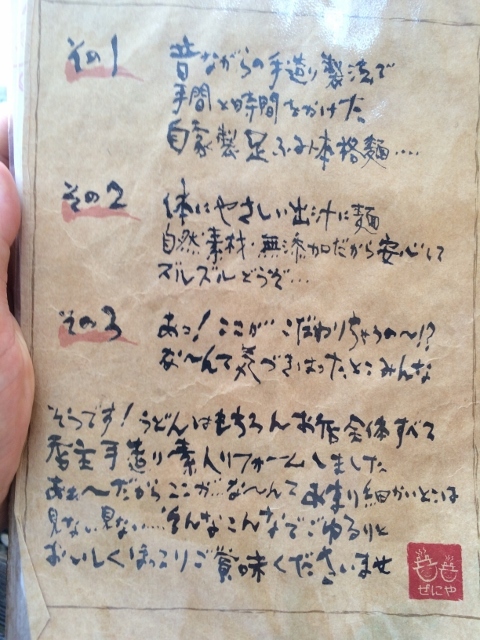 その1
昔ながらの手造り製法で
手間と時間をかけた
自家製足ふみ本格麺....
その2
体にやさしい出汁に麺
自然素材・無添加だから安心して
ズルズルどうぞ...
その3
あっ！ここがこだわりちゃうの〜!?
な〜んて気づきはったとこみんな
そうです！うどんはもちろんお店全体すべて
店主手造り素人リフォームしました
あぁ〜だからここが...な〜んてあまり細かいとこは
見ない見ない....そんなこんなでごゆるりと
おいしくほっこりご賞味くださいませ
ぜにや